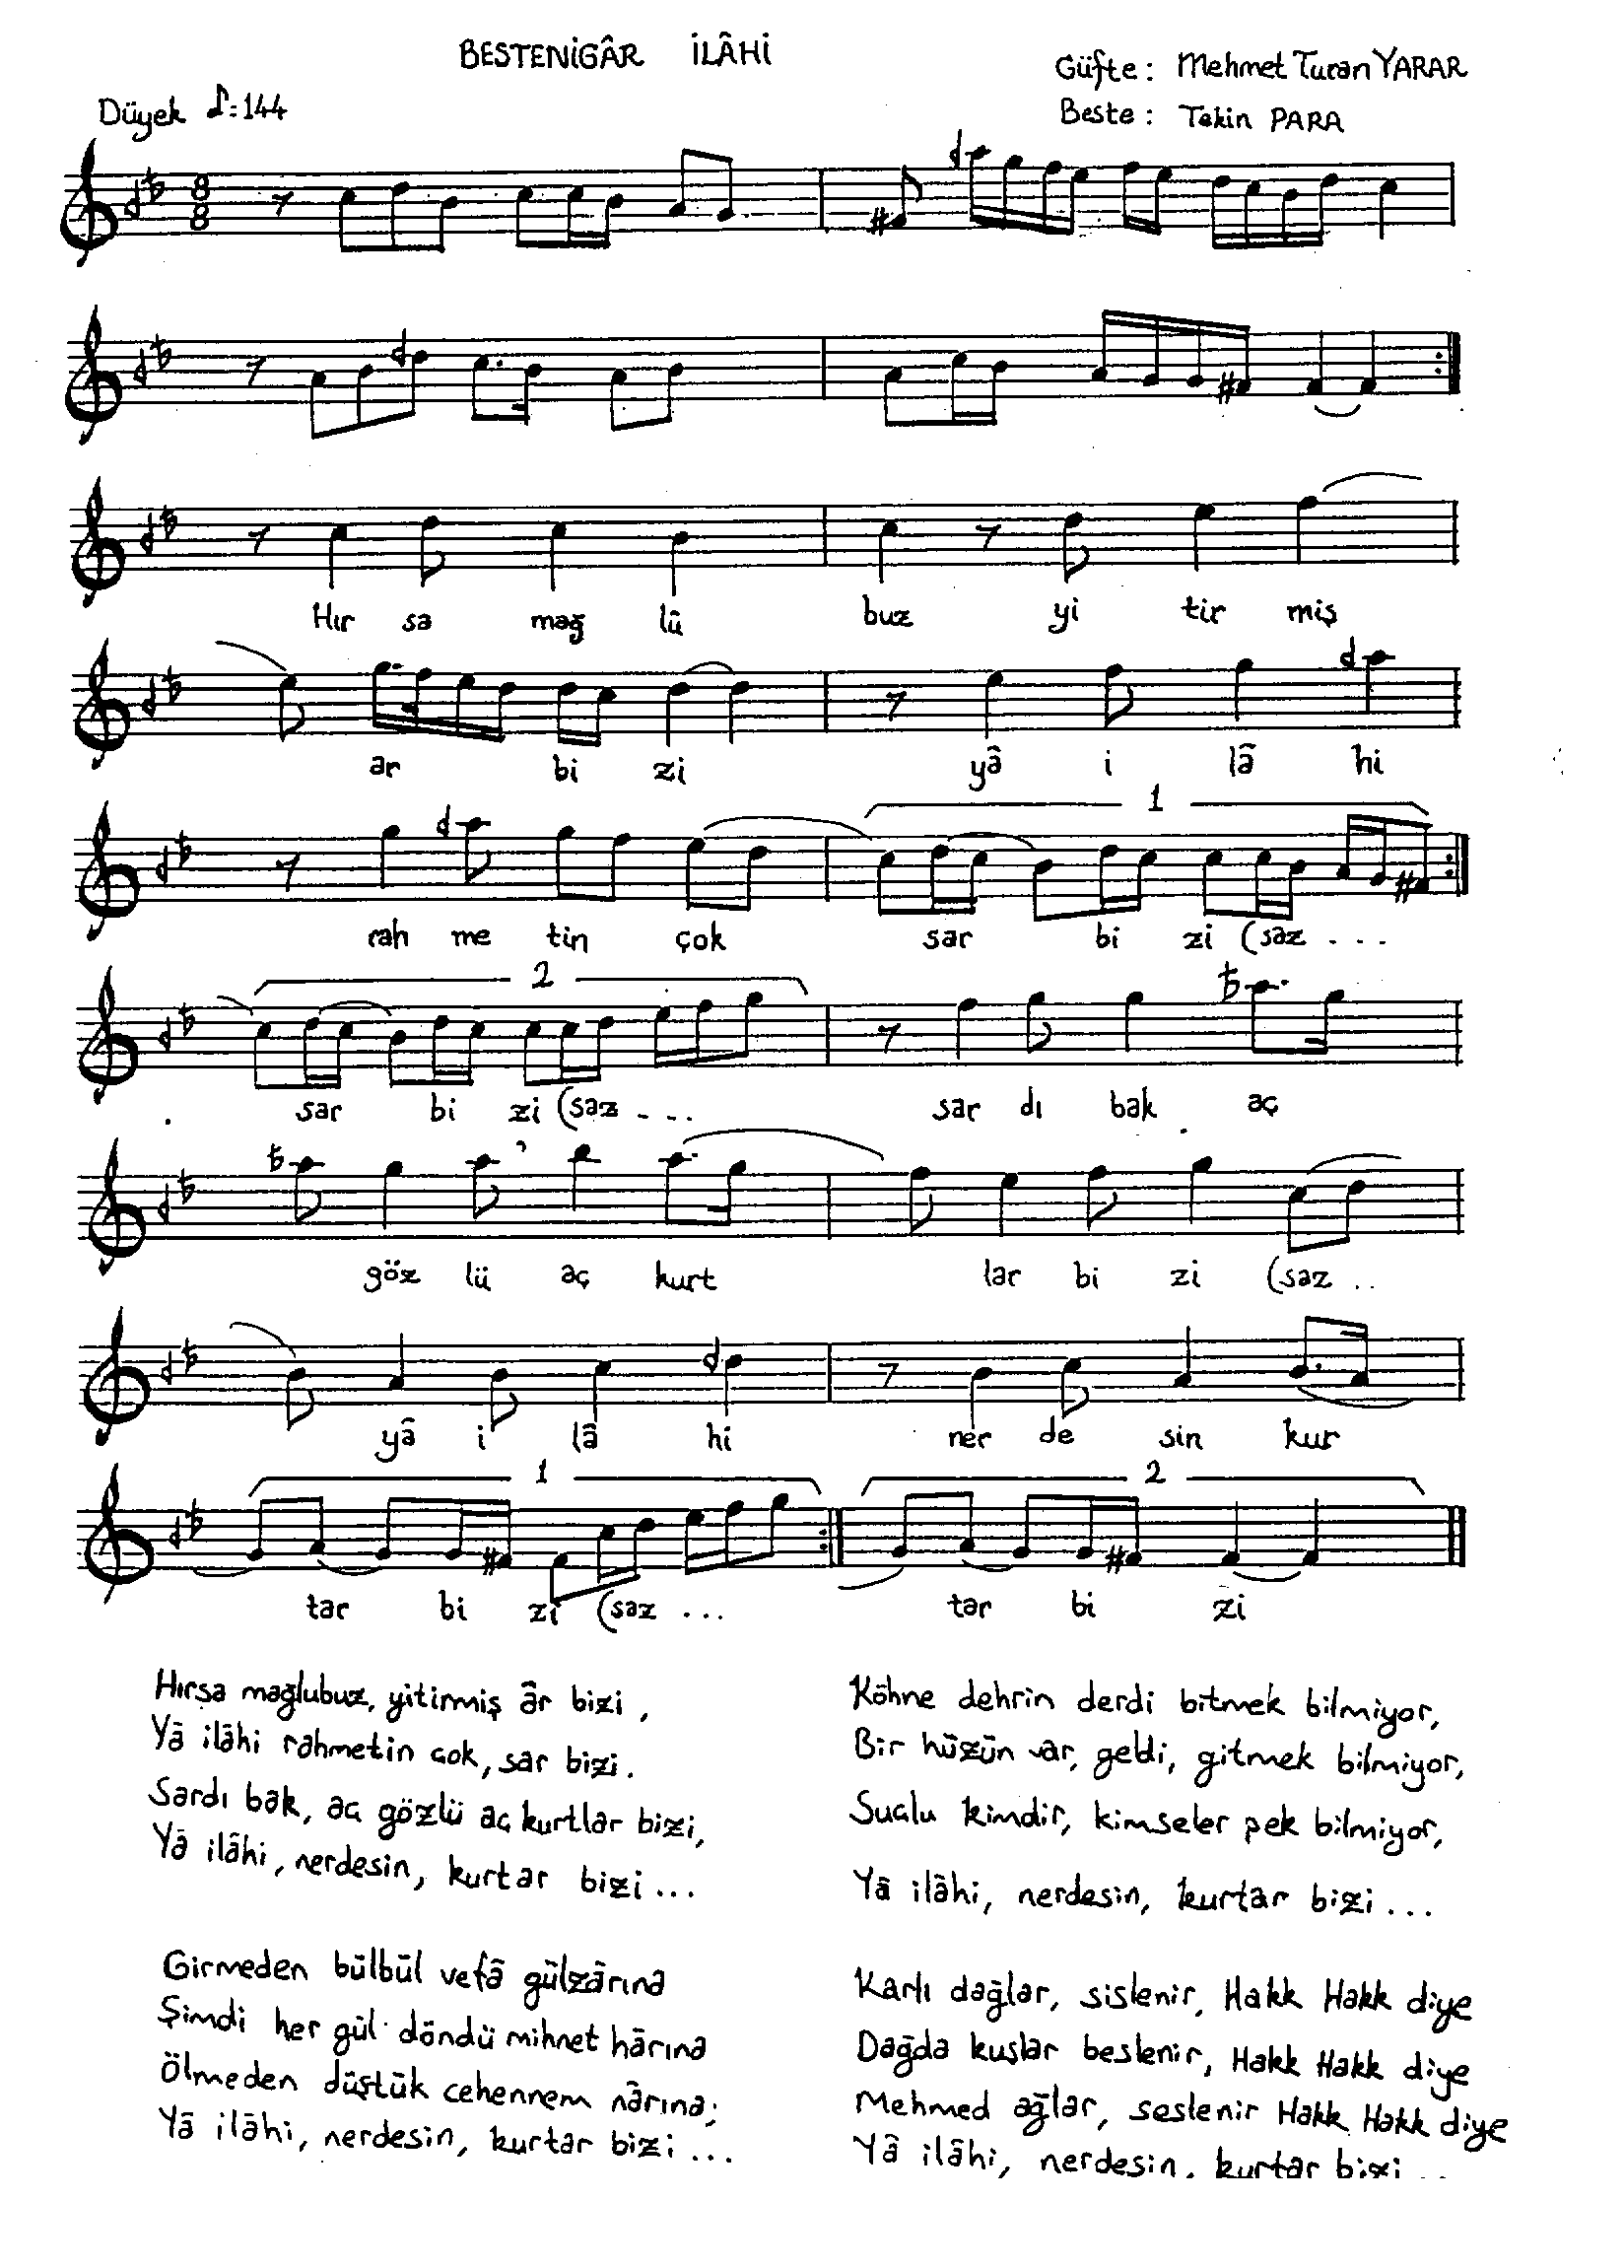 BESTENİGÂR İLÂHİ
Güfte : Mehmet Turan YARAR
Düyek ♪=144
Beste : Tekin PARA
8
8
Hır sa mağ lû buz yi tir miş
ar bi zi yâ i lâ hi
1
rah me tin çok sar bi zi (saz ...
2
sar bi zi (saz ... sar dı bak aç
göz lü aç kurt lar bi zi (saz ..
yâ i lâ hi ner de sin kur
1 2
tar bi zi (saz ... tar bi zi
Hırsa mağlubuz, yitirmiş âr bizi,
Yâ ilâhi rahmetin çok, sar bizi.
Sardı bak, aç gözlü aç kurtlar bizi,
Yâ ilâhi, nerdesin, kurtar bizi ...
Girmeden bülbül vefâ gülzârına
Şimdi her gül döndü mihnet hârına
Ölmeden düştük cehennem nârına;
Yâ ilâhi, nerdesin, kurtar bizi ...
Köhne dehrin derdi bitmek bilmiyor,
Bir hüzün var, geldi, gitmek bilmiyor,
Suçlu kimdir, kimseler pek bilmiyor,
Yâ ilâhi, nerdesin, kurtar bizi ...
Karlı dağlar, sislenir, Hakk Hakk diye
Dağda kuşlar beslenir, Hakk Hakk diye
Mehmed ağlar, seslenir Hakk Hakk diye
Yâ ilâhi, nerdesin, kurtar bizi ...